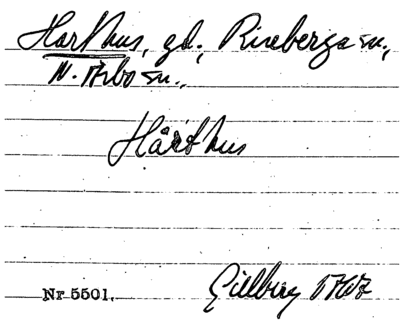 Harthus, gd., Riseberga sn.,
N. Åsbo sn.,
Hårthus
Nr 5501. Gillberg 1767